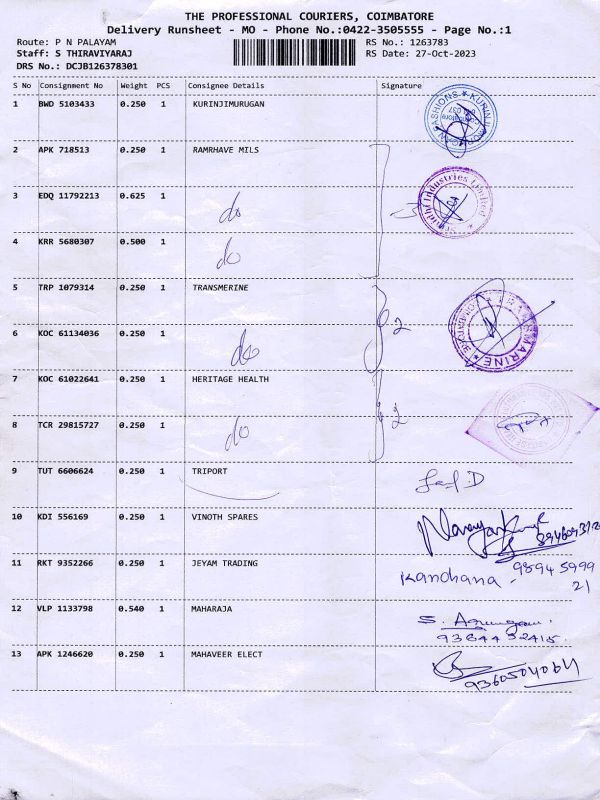 THE PROFESSIONAL COURIERS, COIMBATORE
Delivery Runsheet - MO - Phone No.:0422-3505555 - Page No.:1
Route: P N PALAYAM RS No.: 1263783
Staff: S THIRAVIYARAJ RS Date: 27-Oct-2023
DRS No.: DCJB126378301
S No Consignment No Weight PCS Consignee Details Signature
1 BWD 5103433 0.250 1 KURINJIMURUGAN
2 APK 718513 0.250 1 RAMRHAVE MILS
3 EDQ 11792213 0.625 1 do
4 KRR 5680307 0.500 1 do
5 TRP 1079314 0.250 1 TRANSMERINE 2
6 KOC 61134036 0.250 1 do
7 KOC 61022641 0.250 1 HERITAGE HEALTH 2
8 TCR 29815727 0.250 1 do
9 TUT 6606624 0.250 1 TRIPORT
10 KDI 556169 0.250 1 VINOTH SPARES
11 RKT 9352266 0.250 1 JEYAM TRADING Kandhana - 98945999
21
12 VLP 1133798 0.540 1 MAHARAJA S.
9364432415.
13 APK 1246620 0.250 1 MAHAVEER ELECT
9360504064